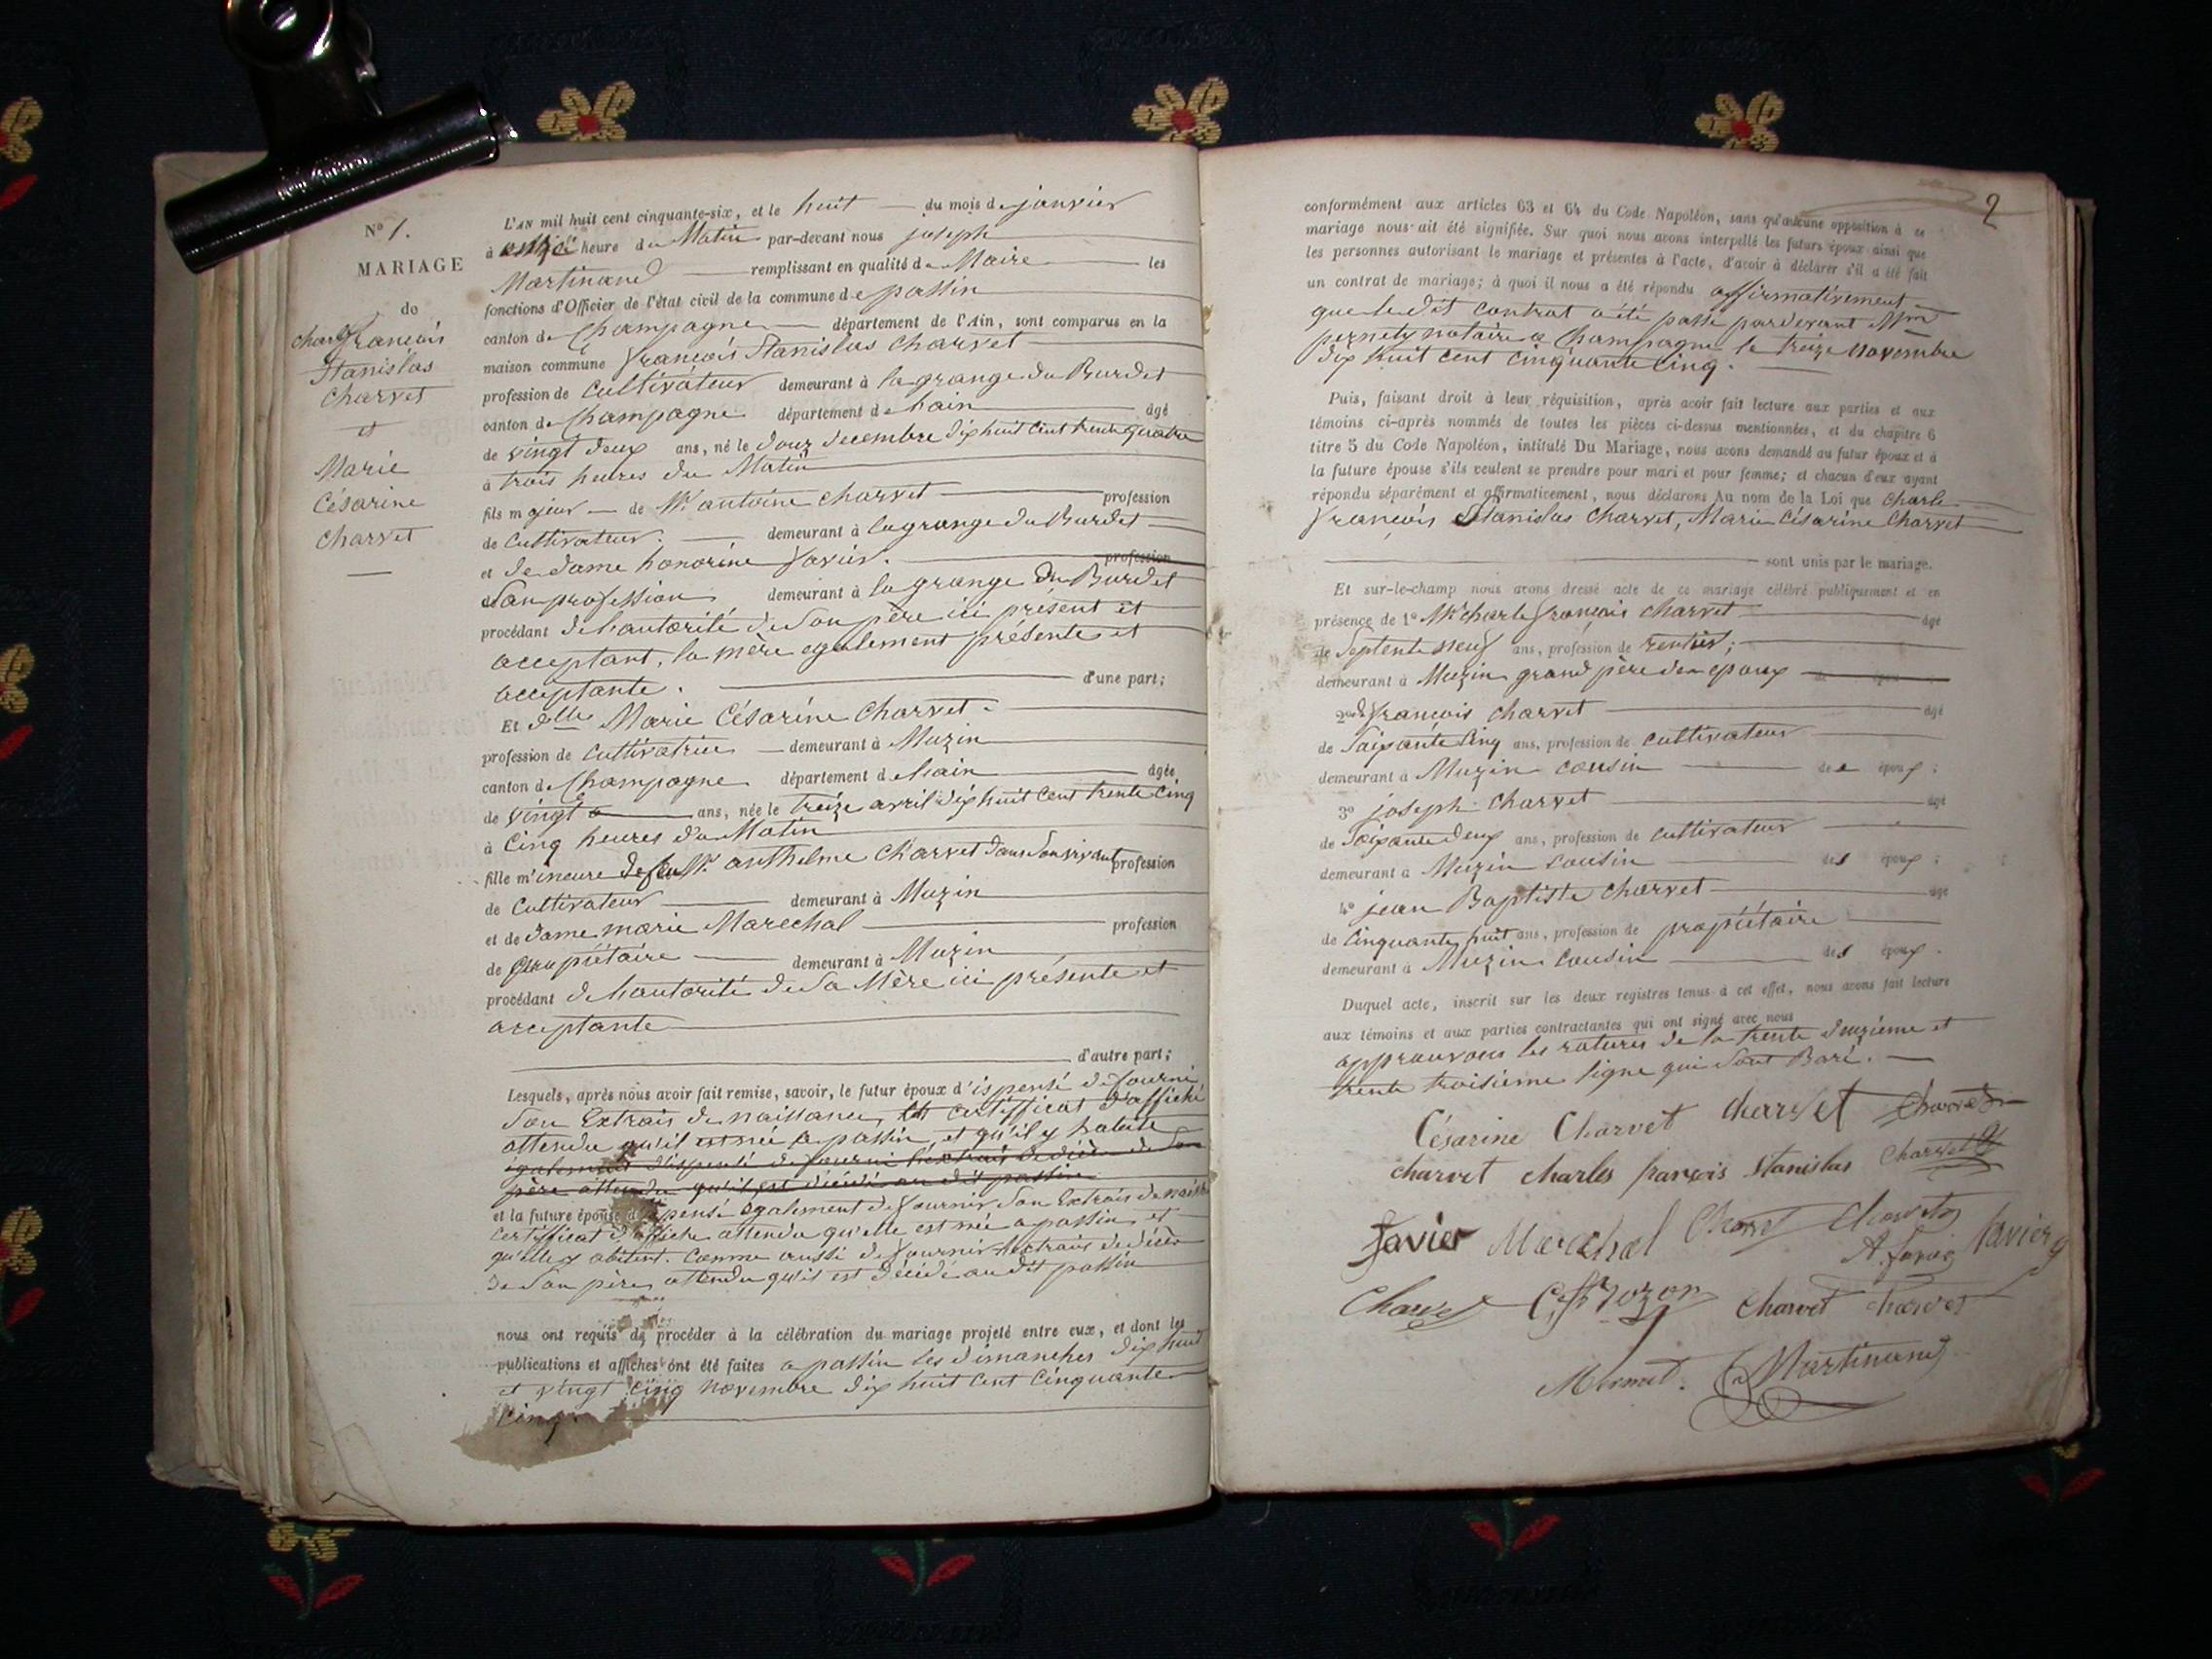 N° 1.
MARIAGE
de
charle françois
Stanislas
Charvet
et
Marie
Césarine
Charvet
L'AN mil huit cent cinquante-six, et le huit du mois de janvier
à onze heure du Matin par-devant nous joseph
Martinand remplissant en qualité de Maire les
fonctions d'Officier de l'état civil de la commune de passin
canton de Champagne département de l'Ain, sont comparus en la
maison commune françois Stanislas Charvet
profession de Cultivateur demeurant à la grange du Burdet
canton de Champagne département de hain âgé
de vingt deux ans, né le douz decembre dix huit cent trente quatre
à trois heures du Matin
fils majeur de Mr. antoine Charvet profession
de Cultivateur. demeurant à la grange du Burdet
et de dame honorine favier. profession
San profession demeurant à la grange du Burdet
procédant de l'autorité de Son père ici présent et
acceptant, la mère egalement présente et
acceptante. d'une part;
Et dlle Marie Césarine Charvet
profession de Cultivatrice demeurant à Muzin
canton de Champagne département de hain âgée
de vingt ans, née le treize avril dix huit cent trente cinq
à Cinq heures du Matin
fille mineure de feu Mr. anthelme Charvet dans Son vivant profession
de Cultivateur demeurant à Muzin
et de dame marie Marechal profession
de propriétaire demeurant à Muzin
procédant de l'autorité de Sa Mère ici présente et
acceptante
d'autre part;
Lesquels, après nous avoir fait remise, savoir, le futur époux d'ispensé de fourni
Son Extrais de naissance, et certifficat d'affiche
attendu qu'il est née a passin, et qu'il y habite
également dispensé de fourni l'extrais de décès de Son
père attendu qu'il est décédé au dit passin
et la future épouse dispensé également de fournir Son Extrais de naiss
certifficat d'affiche attendu qu'elle est née a passin et
qu'elle y abitent. Comme aussi de fournir l'extrais de décès
de Son père attendu qu'il est décédé au dit passin
nous ont requis de procéder à la célébration du mariage projeté entre eux, et dont les
publications et affiches ont été faites a passin les dimanches dix huit
et vingt cinq novembre dix huit cent cinquante
Cinq
2
conformément aux articles 63 et 64 du Code Napoléon, sans qu'aucune opposition à ce
mariage nous ait été signifiée. Sur quoi nous avons interpellé les futurs époux ainsi que
les personnes autorisant le mariage et présentes à l'acte, d'avoir à déclarer s'il a été fait
un contrat de mariage; à quoi il nous a été répondu affirmativement
que le dit contrat a été passé pardevant
pernety notaire a Champagne le treize novembre
dix huit cent cinquante Cinq.
Puis, faisant droit à leur réquisition, après avoir fait lecture aux parties et aux
témoins ci-après nommés de toutes les pièces ci-dessus mentionnées, et du chapitre 6
titre 5 du Code Napoléon, intitulé Du Mariage, nous avons demandé au futur époux et à
la future épouse s'ils veulent se prendre pour mari et pour femme; et chacun d'eux ayant
répondu séparément et affirmativement, nous déclarons Au nom de la Loi que Charle
françois Stanislas Charvet, Marie Césarine Charvet
sont unis par le mariage.
Et sur-le-champ nous avons dressé acte de ce mariage célébré publiquement et en
présence de 1° Mr. Charle françois Charvet âgé
de Septente neuf ans, profession de rentier;
demeurant à Muzin grand père de epoux
2° françois Charvet âgé
de Soixante Cinq ans, profession de cultivateur
demeurant à Muzin Cousin de époux;
3° joseph Charvet âgé
de Soixante deux ans, profession de cultivateur
demeurant à Muzin Cousin des époux;
4° jean Baptiste Charvet âgé
de Cinquante huit ans, profession de propriétaire
demeurant à Muzin Cousin des époux.
Duquel acte, inscrit sur les deux registres tenus à cet effet, nous avons fait lecture
aux témoins et aux parties contractantes qui ont signé avec nous
approuvons les ratures de la trente deuzième et
trente troisième ligne qui Sont Baré.
Césarine Charvet Charvet Charvet
Charvet Charles françois Stanislas Charvet
Favier Marechal Charvet Charvet
A. favier favier
Charvet Charvet Charvet
Martinand